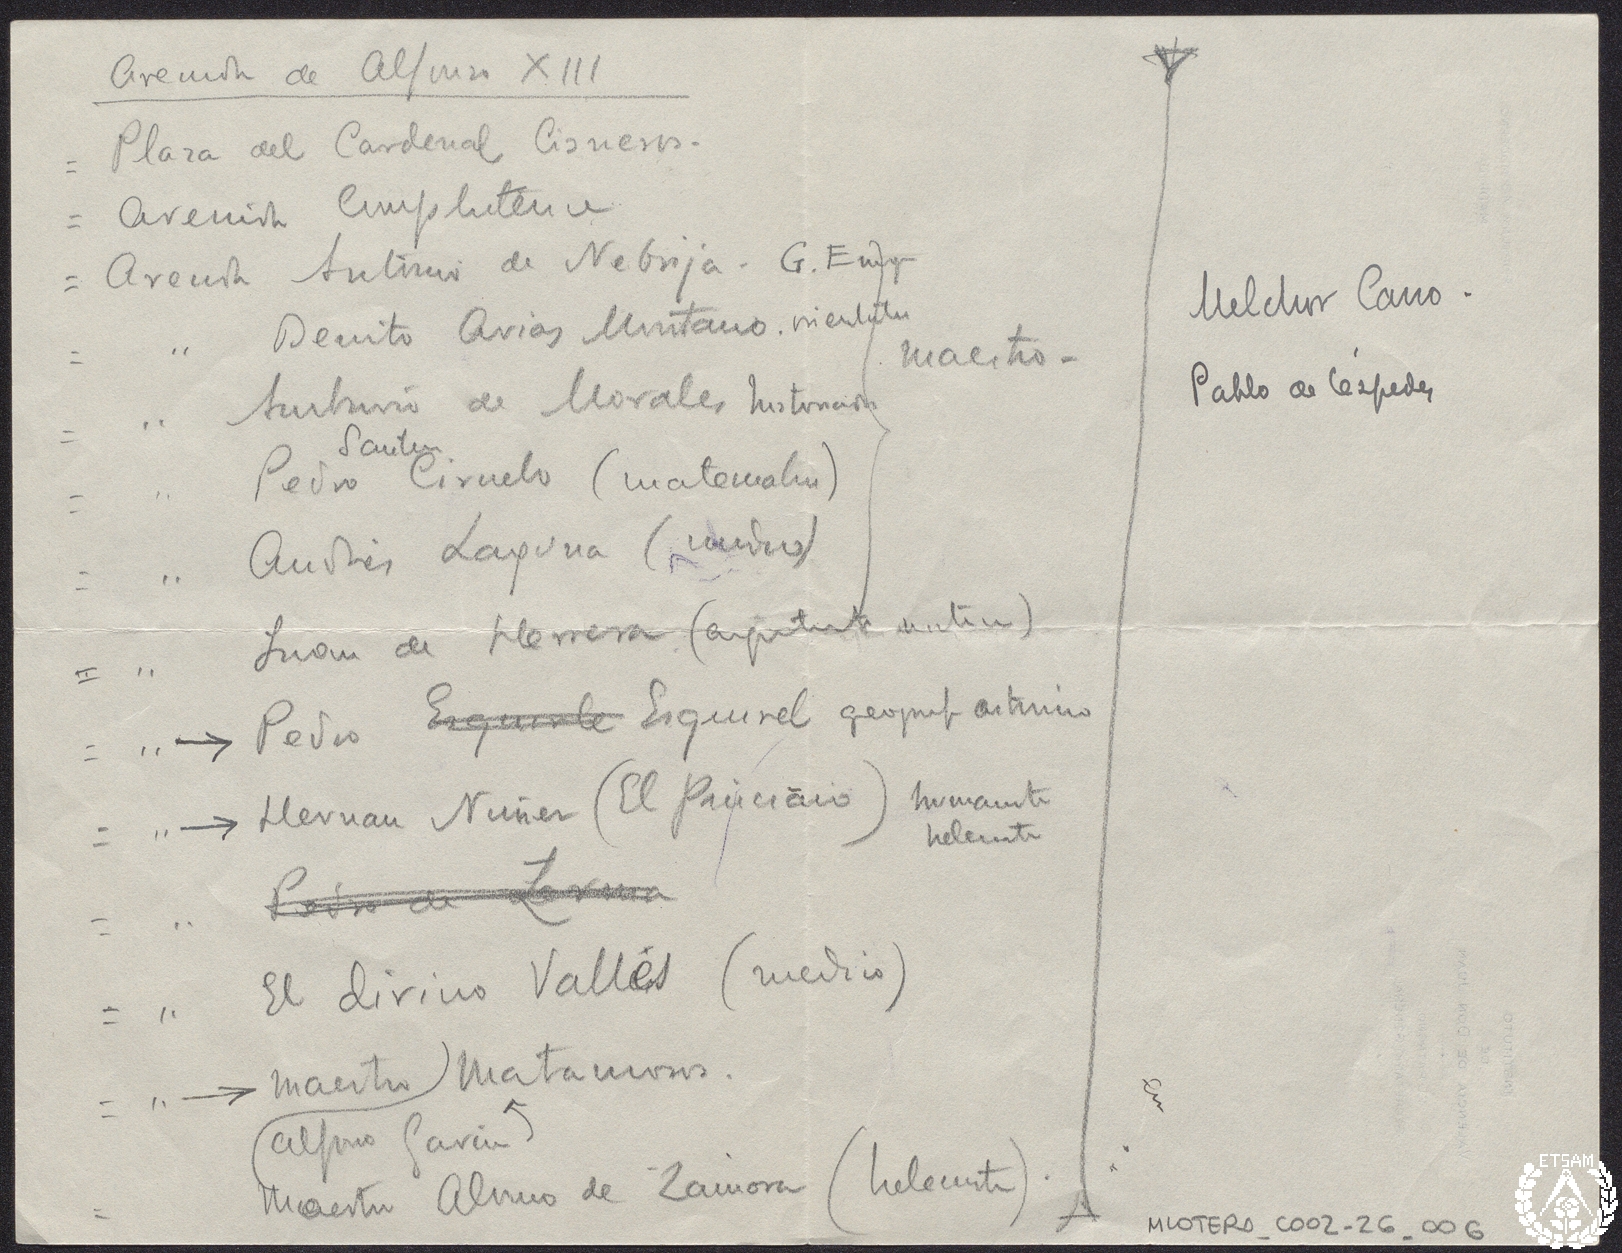 Avenida de Alfonso XIII
= Plaza del Cardenal Cisneros.
= Avenida Complutense
= Avenida Antonio de Nebrija. G. Eny
= " Benito Arias Montano. orientalista
= " Ambrosio de Morales historiador
Sanchez
= " Pedro Ciruelo (matematico)
= " Andrés Laguna (medico)
maestro -
= " Juan de Herrera (arquitecto
= " → Pedro Esquivele Esquivel geograf
= " → Hernan Nuñez (El Pinciano) humanista
helenista
= " Pedro de Lerma
= " El divino Vallés (medico)
= " → maestro) Matamoros.
(Alfonso Garcia
= Maestro Alonso de Zamora (helenista).
Melchor Cano.
Pablo de Céspedes
MLOTERO_C002-26_006
ETSAM